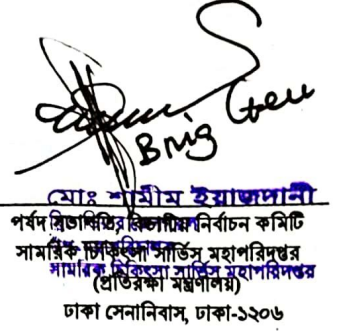 Brig Gen
মোঃ শামীম ইয়াজদানী
পর্ষদ সভাপতি, বিভাগীয় নির্বাচন কমিটি
সামরিক চিকিৎসা সার্ভিস মহাপরিদপ্তর
সামরিক চিকিৎসা সার্ভিস মহাপরিদপ্তর
(প্রতিরক্ষা মন্ত্রণালয়)
ঢাকা সেনানিবাস, ঢাকা-১২০৬